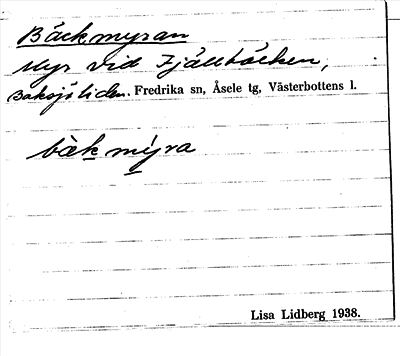 Bäckmyran
Myr vid Fjällbäcken,
Baksjöliden. Fredrika sn, Åsele tg, Västerbottens l.
bæk mýra
Lisa Lidberg 1938.